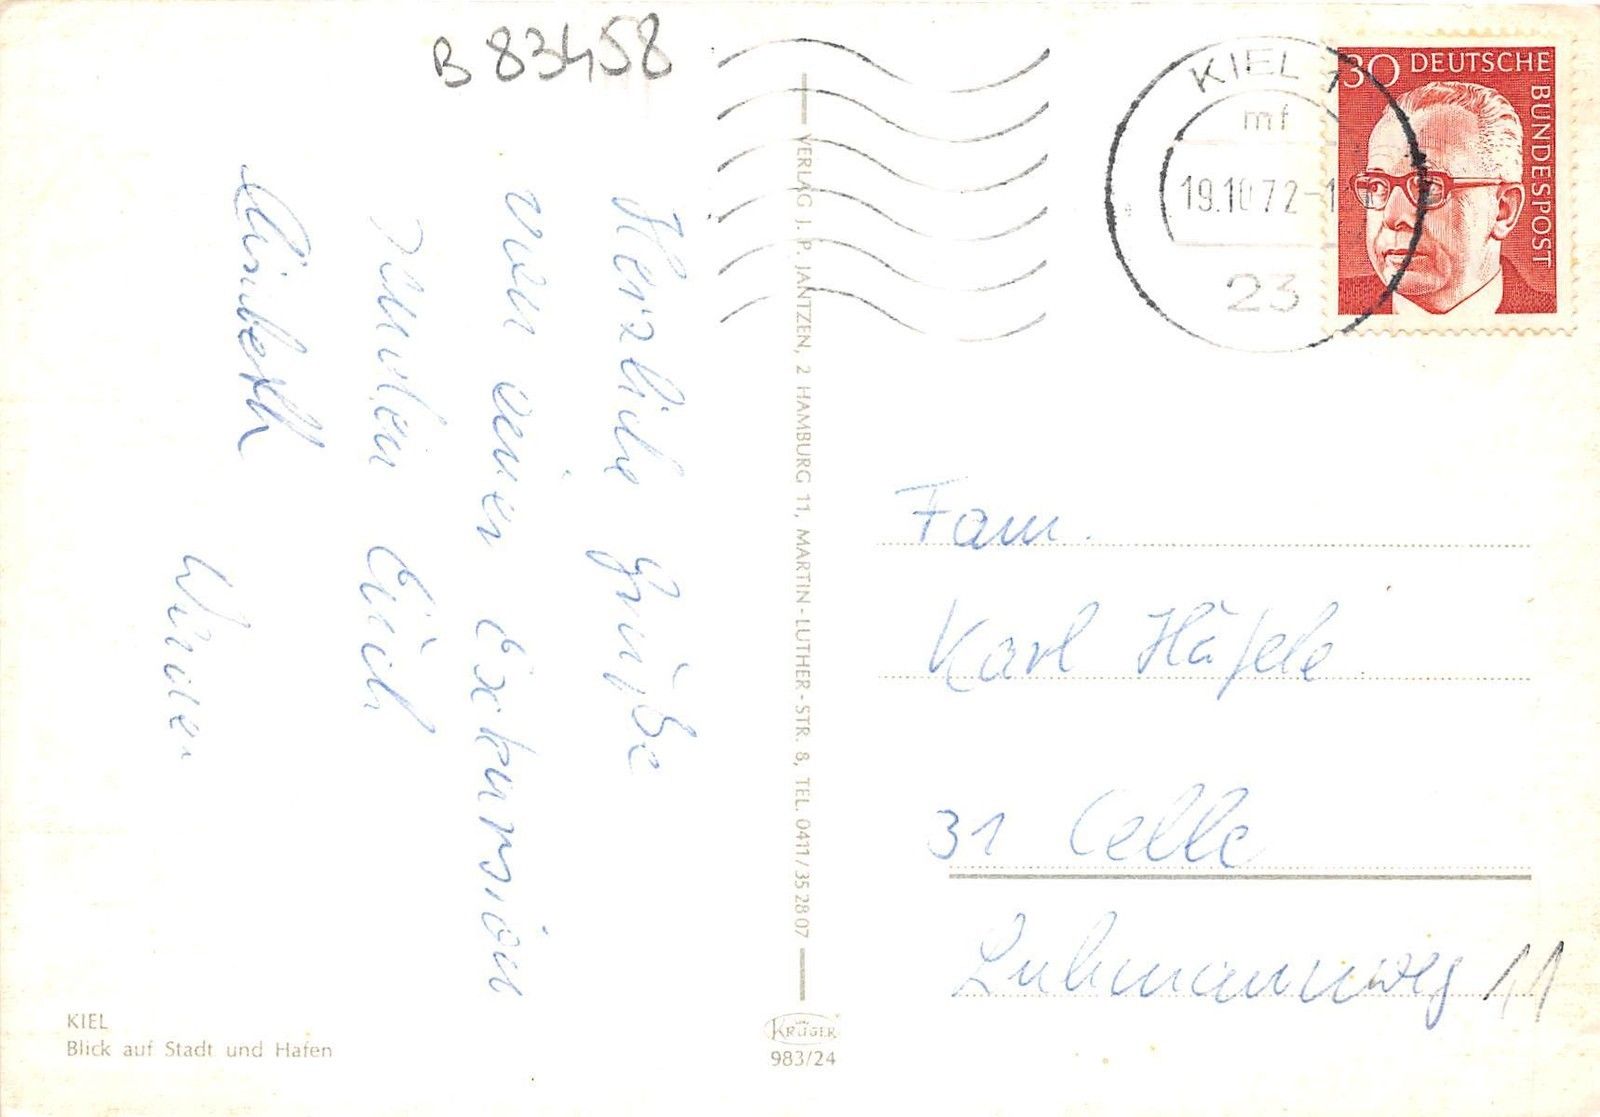 B 83458
Herzliche Grüße
von einer Exkursion
senden Euch
Annibeth
Werner
KIEL
Blick auf Stadt und Hafen
VERLAG J. P. JANTZEN, 2 HAMBURG 11, MARTIN-LUTHER-STR. 8, TEL. 0411/352807
KRÜGER
983/24
KIEL 1
mf
19.10.72-1
23
30 DEUTSCHE BUNDESPOST
Fam.
Karl Hägele
31 Celle
Luhmannweg 11